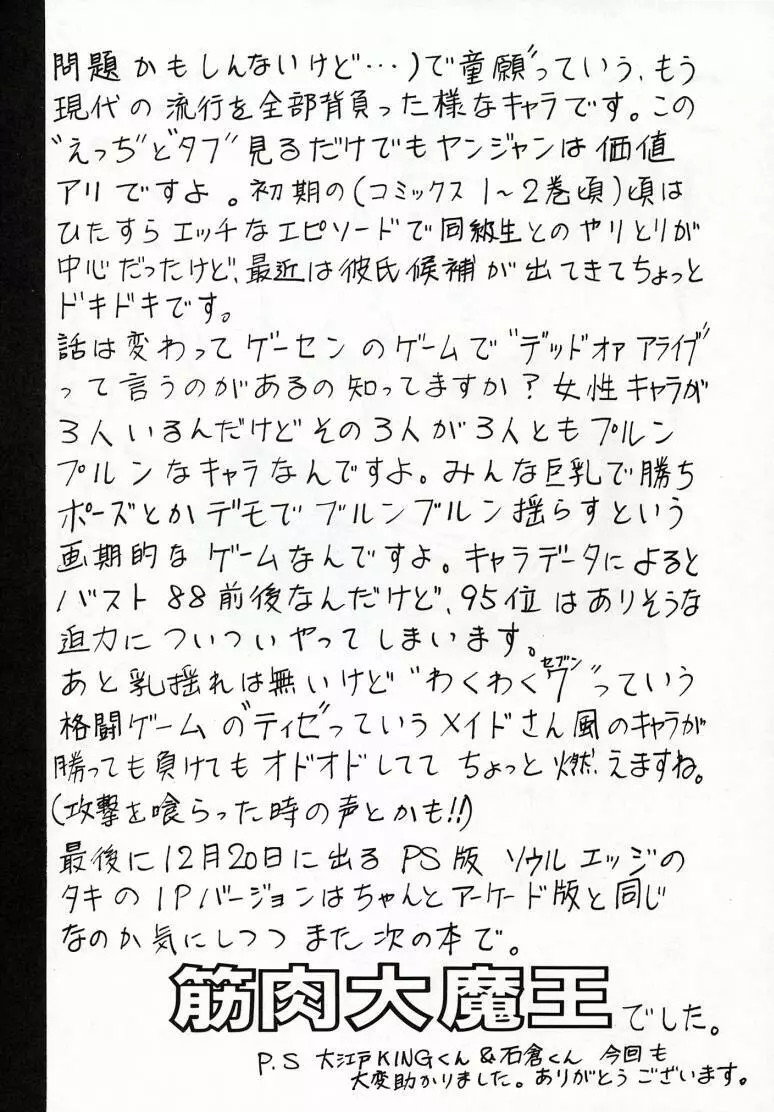 問題かもしんないけど…)で童願"っていう、もう
現代の流行を全部背負った様なキャラです。この
"えっち"と"タブ"見るだけでもヤンジャンは価値
アリですよ。初期の(コミックス1～2巻頃)頃は
ひたすらエッチなエピソードで同級生とのやりとりが
中心だったけど、最近は彼氏候補が出てきてちょっと
ドキドキです。
話は変わってゲーセンのゲームで"デッドオァアライブ"
って言うのがあるの知ってますか?女性キャラが
3人いるんだけどその3人が3人ともプルン
プルンなキャラなんですよ。みんな巨乳で勝ち
ポーズとかデモでブルンブルン揺らすという
画期的なゲームなんですよ。キャラデータによると
バスト88前後なんだけど、95位はありそうな
迫力についついやってしまいます。
あと乳揺れは無いけど"わくわく7"っていう
セブン
格闘ゲームの"ティゼ"っていうメイドさん風のキャラが
勝っても負けてもオドオドしててちょっと燃えますね。
(攻撃を喰らった時の声とかも!!)
最後に12月20日に出るPS版ソウルエッジの
タキの1Pバージョンはちゃんとアーケード版と同じ
なのか気にしつつまた次の本で。
筋肉大魔王でした。
P.S 大江戸KINGくん&石倉くん 今回も
大変助かりました。ありがとうございます。